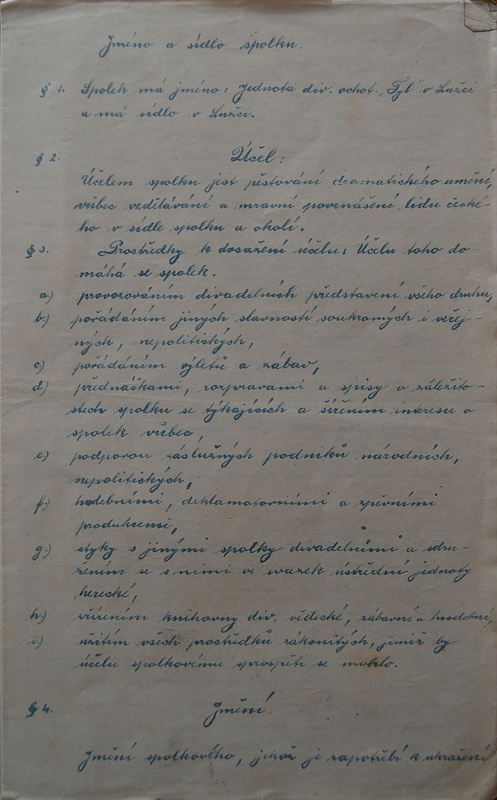 Jméno a sídlo spolku.
§ 1. Spolek má jméno: Jednota div. ochot. „Tyl" v Lužci
a má sídlo v Lužci.
§ 2. Účel:
Účelem spolku jest pěstování dramatického umění,
vůbec vzdělávání a mravní povznášení lidu české-
ho v sídle spolku a okolí.
§ 3. Prostředky k dosažení účelu: Účelu toho do
máhá se spolek.
a) provozováním divadelních představení všeho druhu,
b) pořádáním jiných slavností soukromých i veřej-
ných, nepolitických,
c) pořádáním výletů a zábav,
d) přednáškami, rozpravami a spisy o záležito-
stech spolku se týkajících a šířením interesu o
spolek vůbec,
e) podporou záslužných podniků národních,
nepolitických,
f.) hudebními, deklamatorními a zpěvními
produkcemi,
g.) styky s jinými spolky divadelními a sdru-
žením se s nimi ve svazek ústřední jednoty
herecké,
h.) zřízením knihovny div. vědecké, zábavné a hudební,
i.) užitím všech prostředků zákonitých, jimiž by
účelu spolkovému prospěti se mohlo.
§ 4. Jmění.
Jmění spolkového, jehož je zapotřebí k uhražení